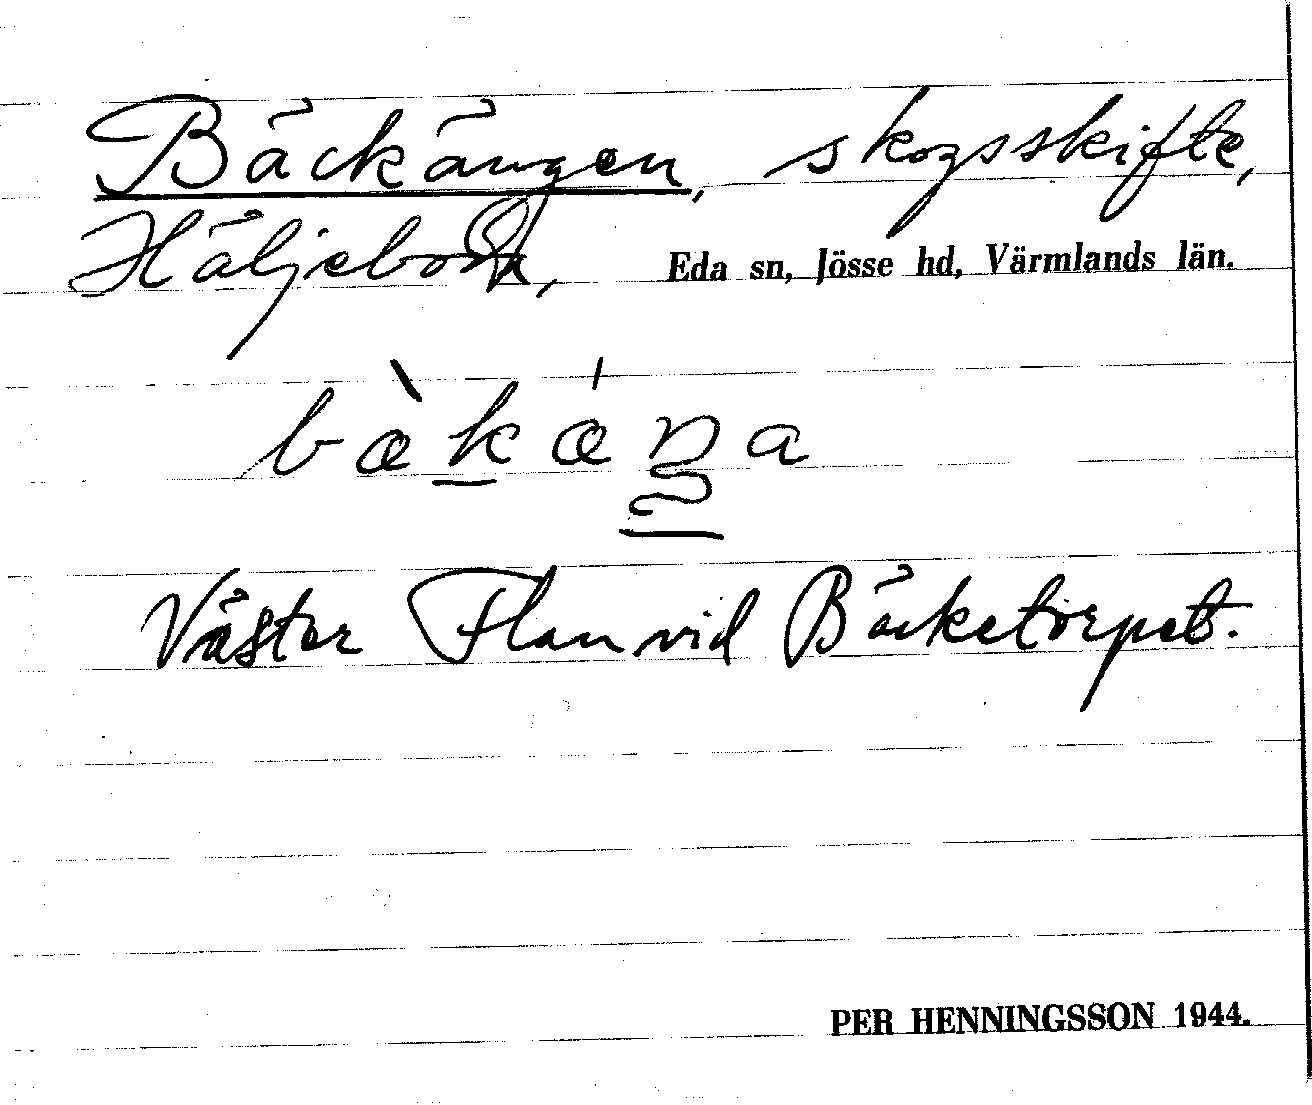 Bäckängen, skogsskifte,
Häljeboda, Eda sn, Jösse hd, Värmlands län.
bæ̀kǽŋa
Väster Flan vid Bäcketorpet.
PER HENNINGSSON 1944.